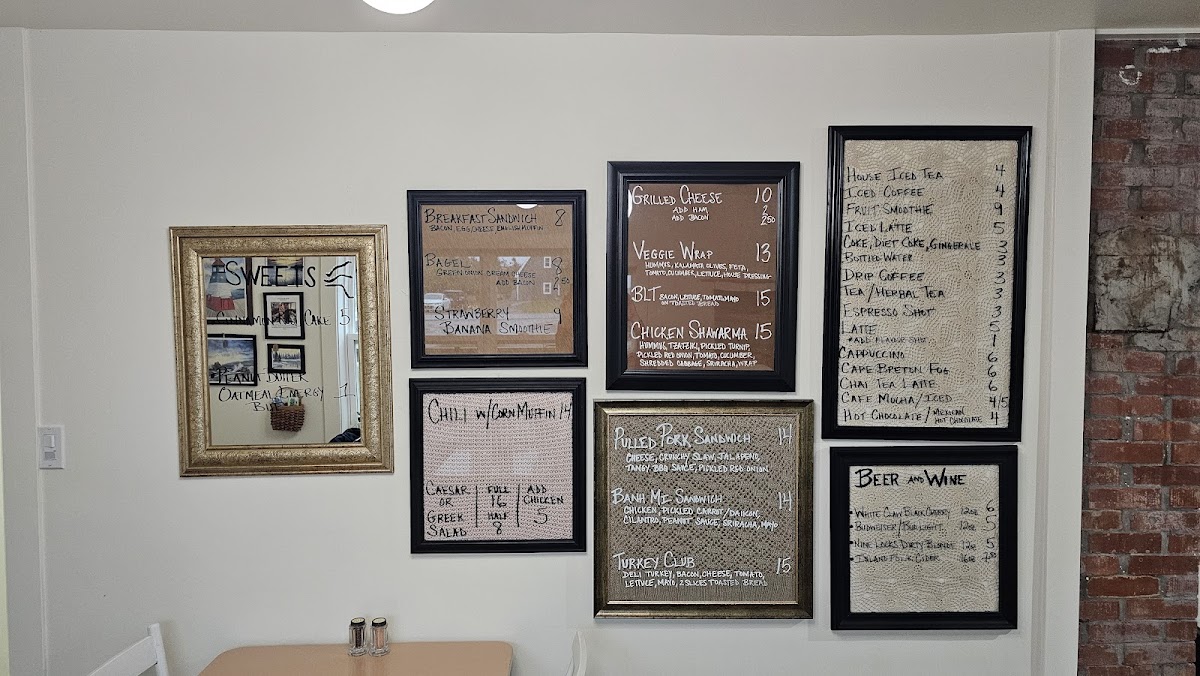 SWEETS
CINNAMON CAKE 5
PEANUT BUTTER
OATMEAL ENERGY 1
BREAKFAST SANDWICH 8
BACON, EGG, CHEESE ENGLISH MUFFIN
BAGEL 8
GREEN ONION CREAM CHEESE
ADD BACON 2.50
STRAWBERRY 9
BANANA SMOOTHIE
CHILI W/CORN MUFFIN 14
CAESAR OR GREEK SALAD
FULL 16
HALF 8
ADD CHICKEN 5
GRILLED CHEESE 10
ADD HAM 2
ADD BACON 2.50
VEGGIE WRAP 13
HUMMUS, KALAMATA OLIVES, FETA,
TOMATO, CUCUMBER, LETTUCE, HOUSE DRESSING
BLT BACON, LETTUCE, TOMATO, MAYO 15
ON TOASTED BREAD
CHICKEN SHAWARMA 15
HUMMUS, TZATZIKI, PICKLED TURNIP,
PICKLED RED ONION, TOMATO, CUCUMBER,
SHREDDED CABBAGE, SRIRACHA, WRAP
PULLED PORK SANDWICH 14
CHEESE, CRUNCHY SLAW, JALAPENO,
TANGY BBQ SAUCE, PICKLED RED ONION
BANH MI SANDWICH 14
CHICKEN, PICKLED CARROT/DAIKON,
CILANTRO, PEANUT SAUCE, SRIRACHA, MAYO
TURKEY CLUB 15
DELI TURKEY, BACON, CHEESE, TOMATO,
LETTUCE, MAYO, 2 SLICES TOASTED BREAD
HOUSE ICED TEA 4
ICED COFFEE 4
FRUIT SMOOTHIE 9
ICED LATTE 5
COKE, DIET COKE, GINGERALE 3
BOTTLED WATER 3
DRIP COFFEE 3
TEA/HERBAL TEA 3
ESPRESSO SHOT 3
LATTE 5
*ADD FLAVOR SHOT 1
CAPPUCCINO 6
CAPE BRETON FOG 6
CHAI TEA LATTE 6
CAFE MOCHA/ICED 4/5
HOT CHOCOLATE/MEXICAN HOT CHOCOLATE 4
BEER AND WINE
• WHITE CLAW BLACK CHERRY 12oz 6
• BUDWEISER/BUD LIGHT 12oz 5
• NINE LOCKS DIRTY BLONDE 12oz 5
• ISLAND FOLK CIDER 16oz 7.50